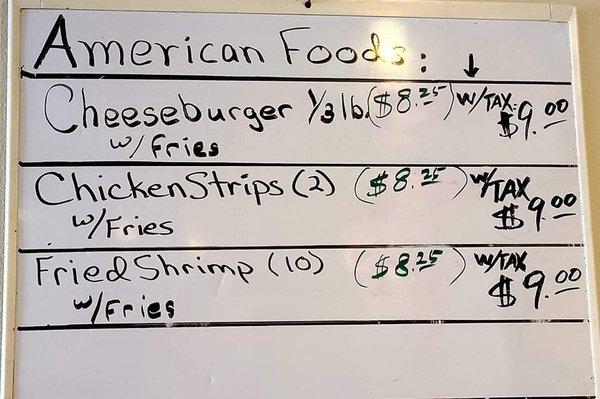 American Foods:
Cheeseburger 1/3 lb. ($8.25) w/TAX: $9.00
w/Fries
Chicken Strips (2) ($8.25) w/TAX $9.00
w/Fries
Fried Shrimp (10) ($8.25) w/TAX $9.00
w/Fries